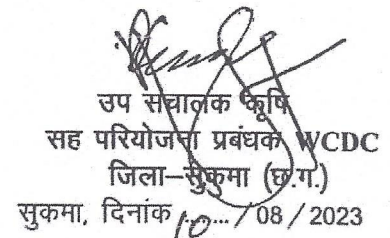 उप संचालक कृषि
सह परियोजना प्रबंधक WCDC
जिला–सुकमा (छ.ग.)
सुकमा, दिनांक 10..../ 08 / 2023